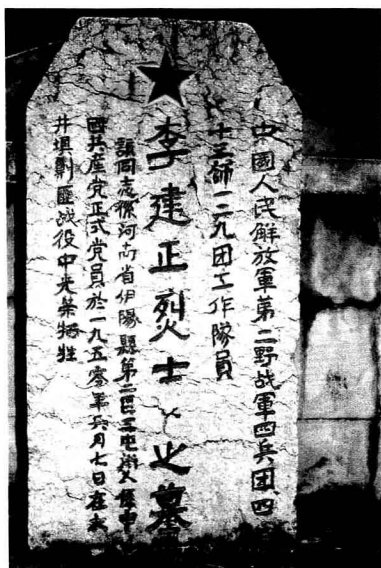 中國人民解放軍第二野战軍四兵团四
十三師一二九团工作隊員
李建正烈士之墓
該同志係河南省伊陽縣第二區三屯街人係中
國共產党正式党員於一九五零年 月七日在大
井垻剿匪战役中光荣牺牲